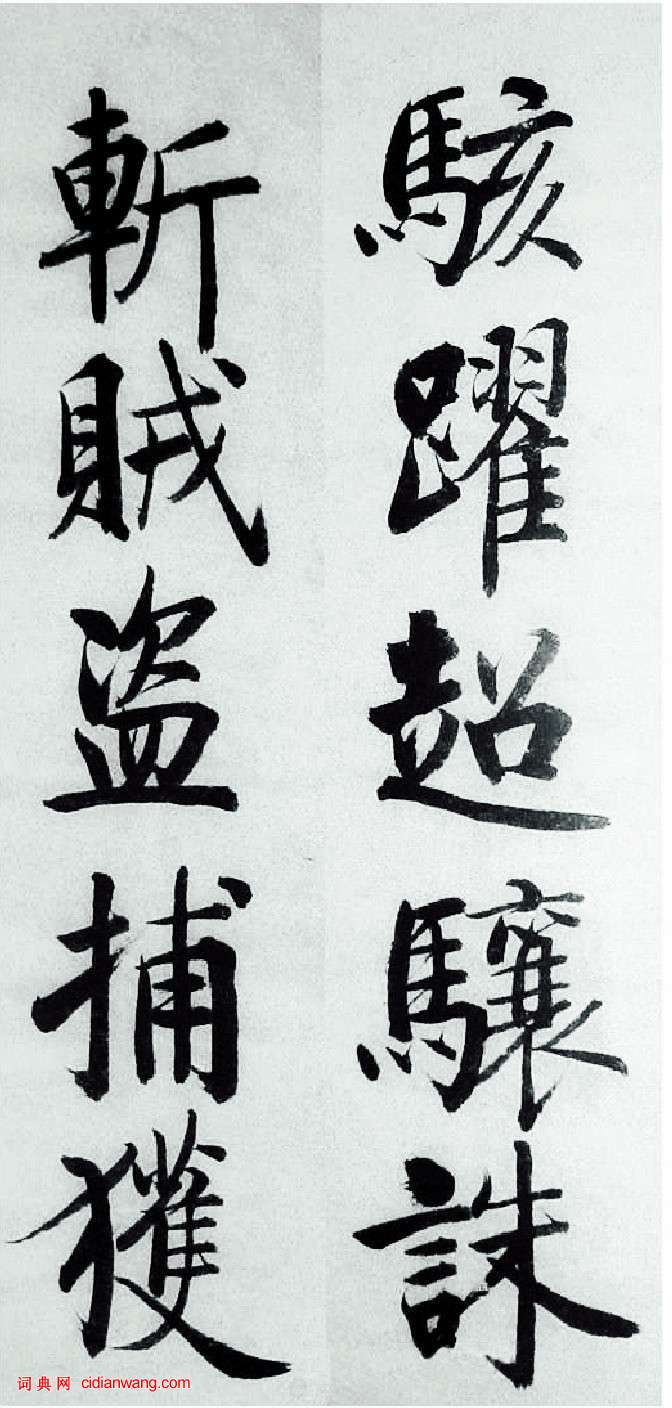 駭躍超驤誅
斬賊盜捕獲
词典网 cidianwang.com